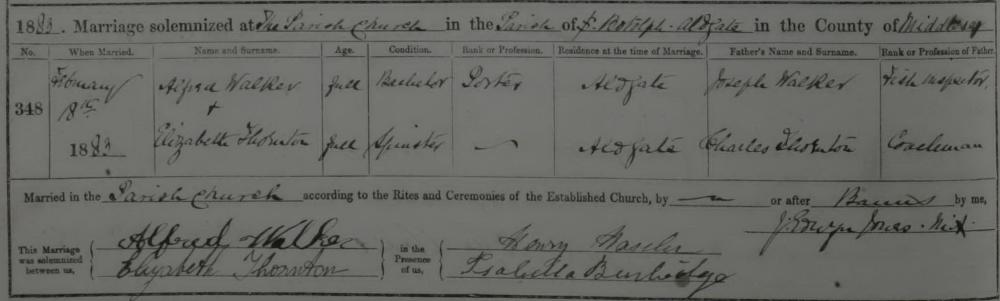 1883. Marriage solemnized at The Parish Church in the Parish of St. Botolph Aldgate in the County of Middlesex
No. When Married. Name and Surname. Age. Condition. Rank or Profession. Residence at the time of Marriage. Father's Name and Surname. Rank or Profession of Father.
348 February 8th 1883
Alfred Walker full Bachelor Porter Aldgate Joseph Walker Fish Inspector
+
Elizabeth Thornton full Spinster — Aldgate Charles Thornton Coachman
Married in the Parish Church according to the Rites and Ceremonies of the Established Church, by — or after Banns by me,
J. Edwyn Jones
This Marriage was solemnized between us, Alfred Walker Elizabeth Thornton in the Presence of us, Henry Isabella Burbidge